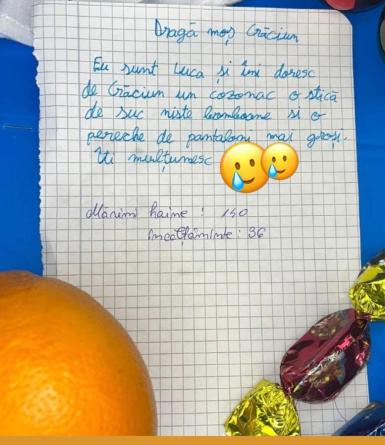 Dragă moș Crăciun
Eu sunt Luca și îmi doresc
de Crăciun un cozonac o stică
de suc niste bomboane si o
pereche de pantaloni mai groși.
Iti mulțumesc
Mărimi haine: 140
Incălțăminte: 36